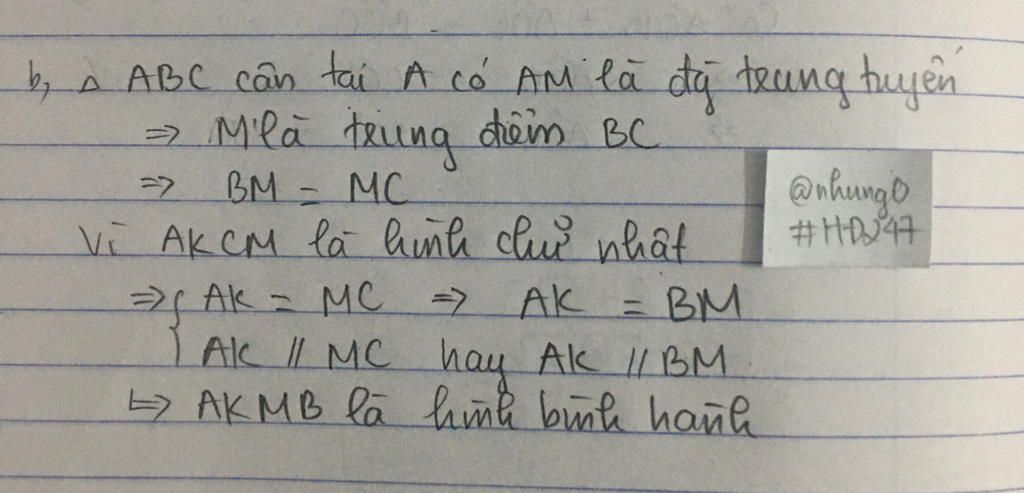 b, △ ABC cân tại A có AM là đg trung tuyến
=> M là trung điểm BC
=> BM = MC
Vì AKCM là hình chữ nhật
=> { AK = MC => AK = BM
AK // MC hay AK // BM
=> AKMB là hình bình hành
@nhung0
#HDJ47